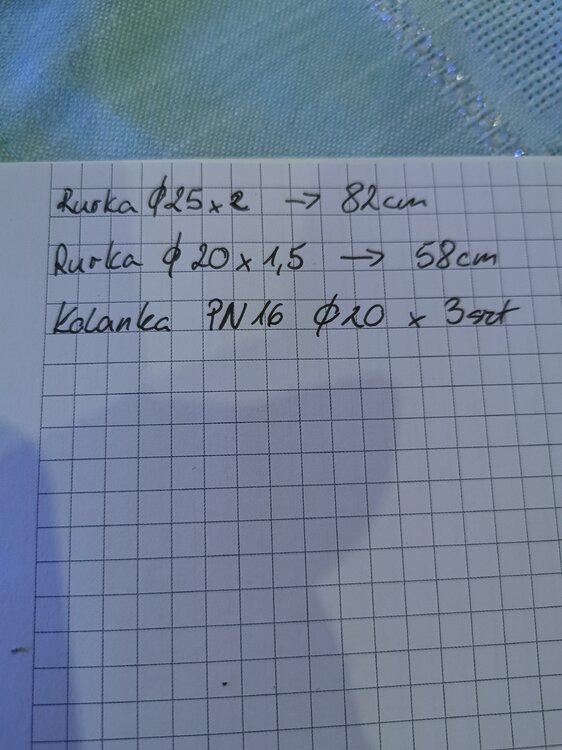 Rurka ϕ25 x 2 → 82cm
Rurka ϕ 20 x 1,5 → 58cm
Kolanka PN16 ϕ20 x 3szt